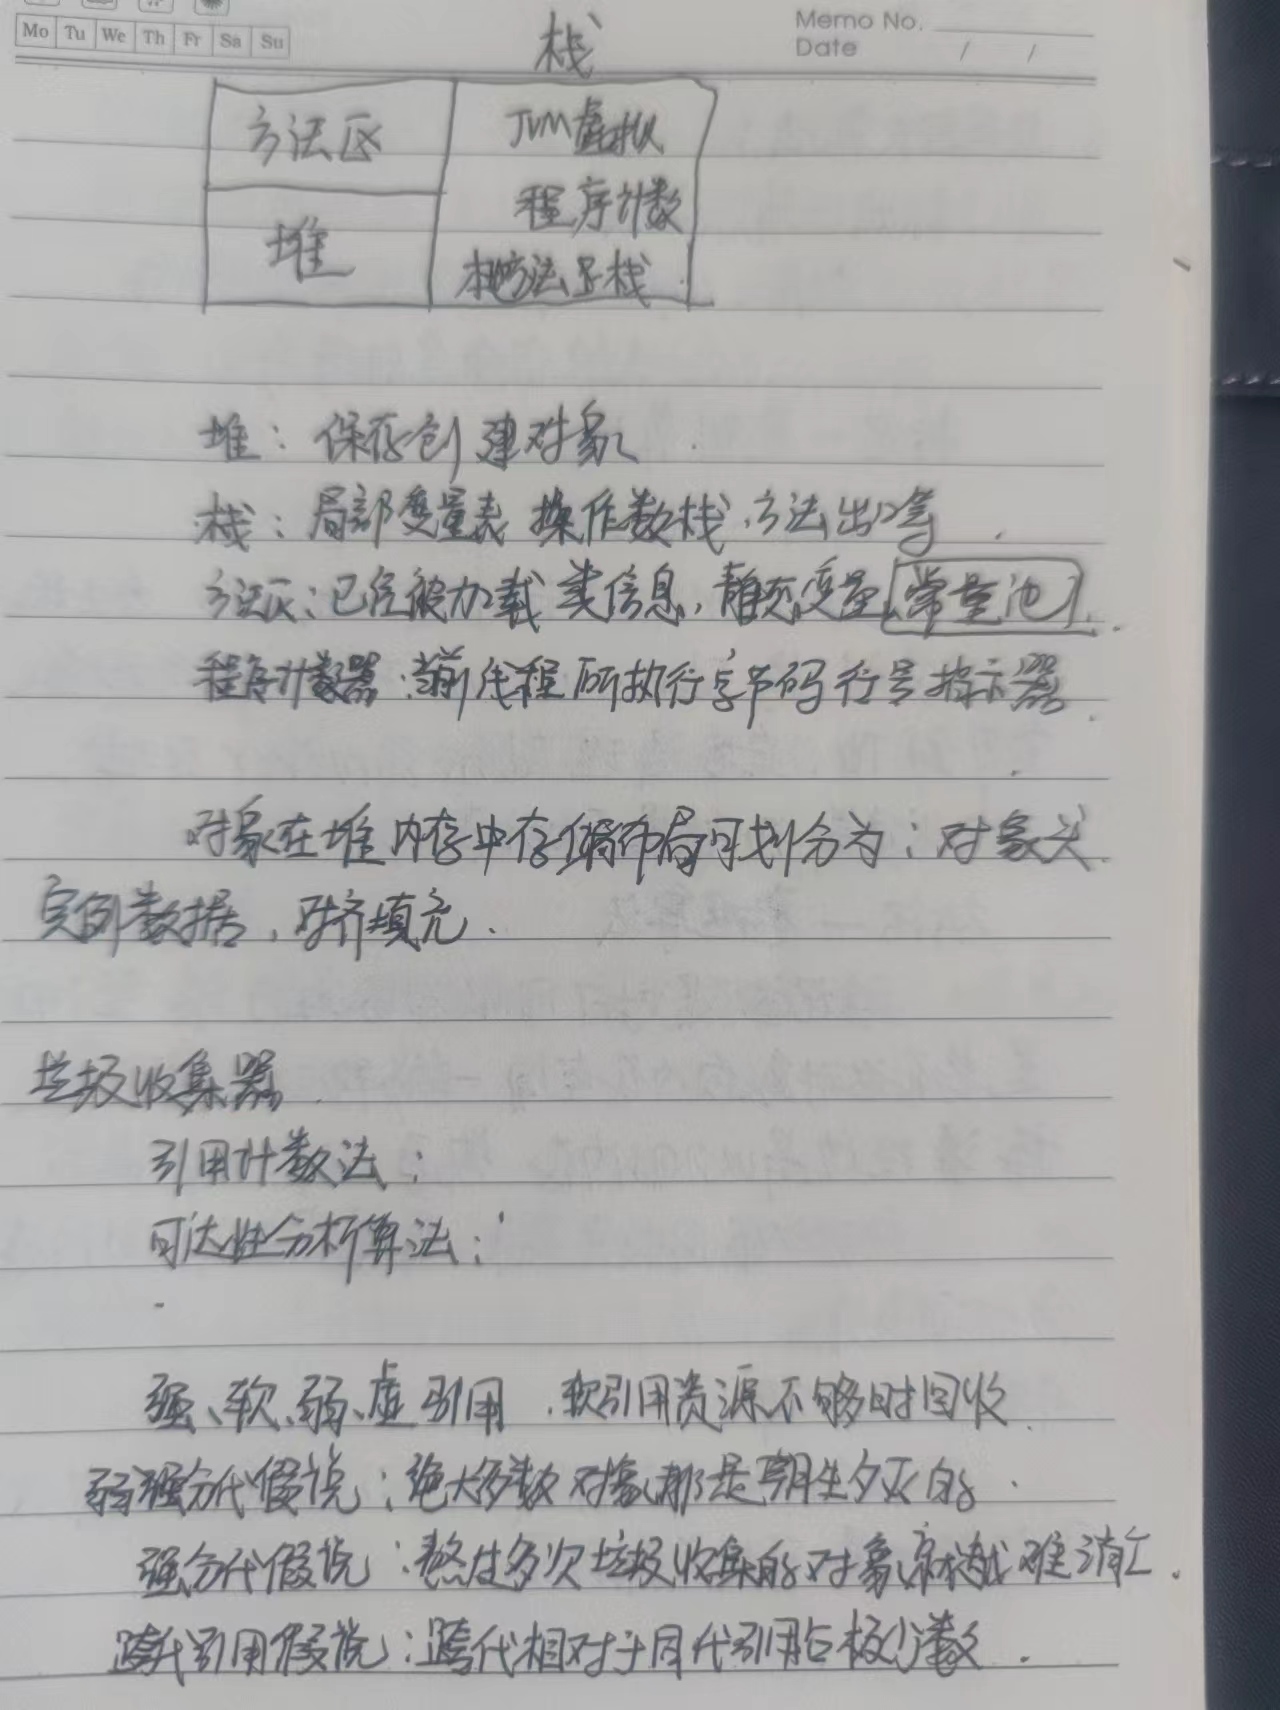 Mo Tu We Th Fr Sa Su
Memo No.
Date / /
栈
方法区
堆
JVM虚拟
程序计数
本地方法 栈
堆：保存创建对象
栈：局部变量表 操作数栈、方法出口等
方法区：已经被加载 类信息，静态变量 常量池
程序计数器：当前线程所执行字节码行号指示器
对象在堆内存中存储布局可划分为：对象头
实例数据，对齐填充．
垃圾收集器
引用计数法：
可达性分析算法：
强、软、弱、虚引用．软引用资源不够时回收
弱 分代假说：绝大多数对象都是朝生夕灭的．
强分代假说：熬过多次垃圾收集的对象就越难消亡．
跨代引用假说：跨代相对于同代引用占极少数．